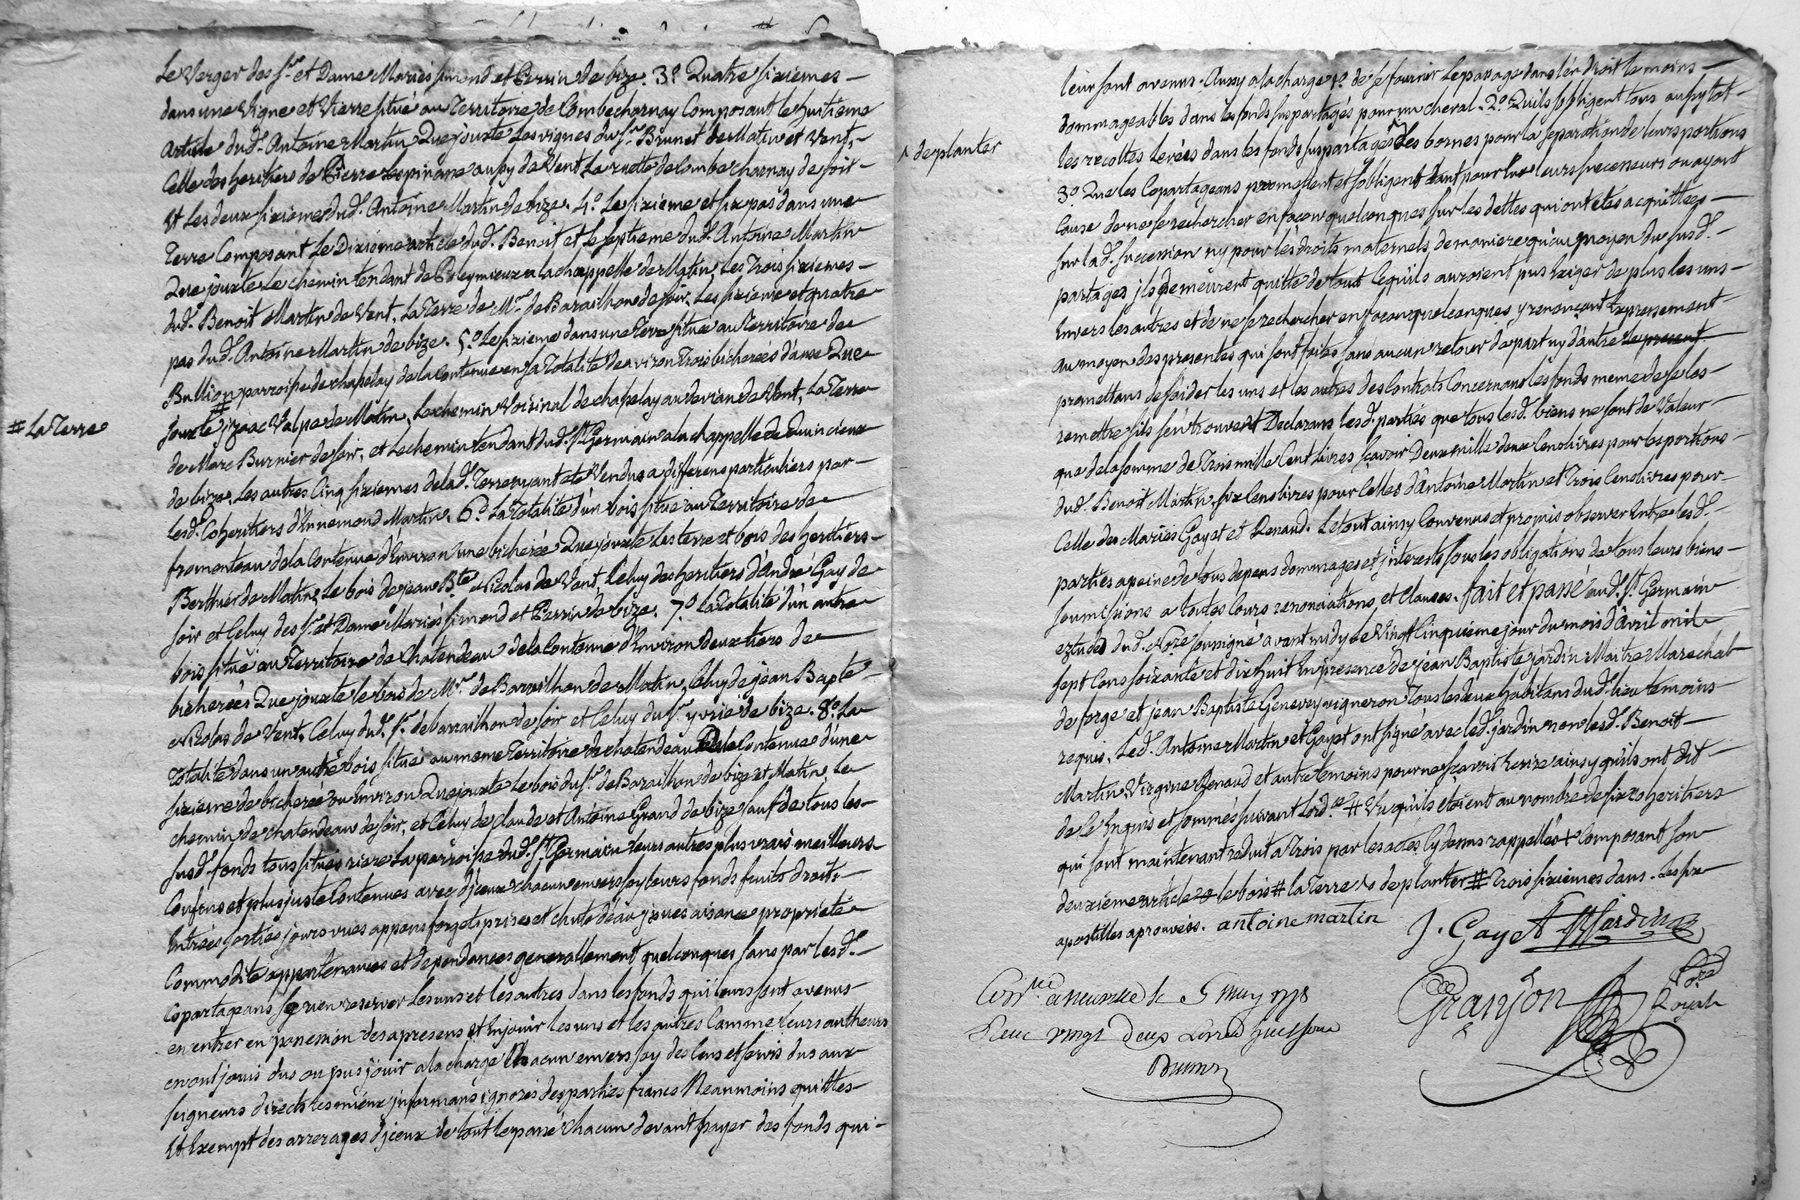 Le Verger des Sr. et Dame Mariés simond et Perrin de bize. 3o. Quatre sixiemes
dans une vigne et Vierre situé au Territoire de Combecharnay Composant le huitieme
article dud. Antoine Martin Que jouxte Les vignes du Sr. Brunet de Matin et Vent,
Celle des heritiers de Pierre Lespinane aussy de Vent La ruette de Combe charnay de soir
Et les deux sixieme dud. Antoine Martin de bize. 4o. Le sixieme et six pas dans une
Terre Composant Le Dixieme article dud. Benoit et Le septieme dud. Antoine Martin
Que jouxte Le chemin tendant de Poleymieux a la chappelle de Matin, Les Trois sixiemes
dud. Benoit Martin de Vent, La Terre de Mr. de Baraillon de soir, Les sixieme et quatre
pas dud. Antoine Martin de bize. 5o. Le sixieme dans une Terre située au Territoire de
Bullion parroisse de chapelay de la Contenue en sa Totalité d'environ Trois bicherées d'ane Que
# La Terre
jouxte # jzaac Valpas de Matin, Le chemin Voisinal de chapelay au de Vent, La Terre
de Marc Burnier de soir, et Le chemin tendant dud. St. Germain a la chappelle de Quincieux
de bize, Les autres Cinq sixiemes de lad. Terre ayant été Vendus a differens particuliers par
Lesd. Coheritiers d'Annemond Martin. 6o. La Totalité d'un bois situé au Territoire de
fromenteau de la Contenue d'Environ une bicherée Que jouxte Les terre et bois des heritiers
Berthier de Matin, Le bois de jean Bte. Nicolas de Vent, Celuy des heritiers d'André Gay de
soir et Celuy des Sr. et Dame Mariés simond et Perrin de bize. 7o. La Totalité d'un autre
bois situé au Territoire de Chatendeau de la Contenue d'Environ deux tiers de
bicherées Que jouxte le bois de Mr. de Baraillon de Matin, Celuy de jean Bapte.
Nicolas de Vent, Celuy du d. Sr. de baraillon de soir et Celuy du Sr. yvrie de bize. 8o. La
Totalité dans un autre bois situé au meme Territoire de chatendeau De la Contenue d'une
sixieme de bicherée ou Environ Que jouxte Le bois du Sr. de Baraillon de bize et Matin, Le
chemin de chatendeau de soir, et Celuy de Claude et Antoine Grand de bize sauf de tous les
susd. fonds tous situés riere La parroisse dud. St. Germain leurs autres plus vrais meilleurs
Confins et plus juste Contenues avec d'jceux chacun envers soy Leurs fonds fruits droits
Entrées sorties jours vues appens forgets prises et chute d'eau jssues aisance propriété
Commodité appartenances et dependances generallement quelconques sans par lesd.
Copartageans s'y rien reserver Les uns et les autres dans les fonds qui leurs sont avenus
en entrer en possession des apresens Et En jouir les uns et les autres Comme leurs autheurs
en ont jouis dus ou pus jouir a la charge Chacun envers soy des Cens et servis dus aux
seigneurs directs Lesquieux jnformans ignorés des parties francs Neanmoins quittes
Et Exempt des arrerages d'jceux de tout le passé Chacun devant payer des fonds qui
leur sont avenus. Aussy a la charge 1o. de se fournir Le passage dans l'en droit le moins
dommageables dans les fonds suspartagés pour un cheval. 2o. Quils s'obligent tous aussytot
^ de planter
les recoltes levées dans les fonds suspartages ^ des bornes pour la separation de leurs portions
3o. Que les Copartageans promettent et s'obligent tant pour Eux leurs successeurs ou ayant
Cause de ne se rechercher en façon quelconques sur les dettes qui ont etés acquittées
sur lad. succession ny pour les droits maternels, de maniere qu'au moyen du susd.
partages jls demeurent quitte de tout Ce quils auroient pus Exiger de plus les uns
Envers les autres et de ne se rechercher en façon quelconques y renonçant Expressement
au moyen des presentes qui sont faites sans aucun retour de part ny d'autre le present
promettans de s'aider les uns et les autres des Contrats Concernans les fonds meme de se les
remettre s'ils s'en trouvent Declarans lesd. parties que tous lesd. biens ne sont de Valeur
que de la somme de Trois mille Cent Livres sçavoir Deux mille deux Cens livres pour les portions
dud. Benoit Martin, six Cens livres pour Celles d'Antoine Martin et Trois Cens livres pour
Celle des Mariés Gayet et Renaud. Le tout ainsy Convenus et promis observer Entre lesd.
parties a peine de tous depens dommages et jnterests sous les obligations de tous leurs biens
soumissions a toutes Cours renonciations et Clauses. fait et passé aud. St. Germain
Etude dud. Nore. soussigné avant midy Le Vingt Cinquieme jour du mois d'Avril mil
sept Cens soixante et dix huit En presence de jean Baptiste jardin Maitre Marechal
de forge et jean Baptiste Genevey vigneron Tous les deux habitans dud. lieu temoins
requis. Led. Antoine Martin et Gayet ont signé avec led. jardin non lesd. Benoit
Martin Virginie Renaud et autre temoins pour ne sçavoir Ecrire ainsy quils ont dit
de Ce Enquis et sommés suivant L'ord.ce # Vu quils etoient au nombre de six coheritiers
qui sont maintenant reduit a Trois par les actes Cy dessus rappellés + Composant son
deuxieme article le bois # la Terre ^ de planter # Trois sixiemes dans. Les six
apostilles aprouvées. antoine martin
J. Gayet
JB Jardin
Granjon
Nore. Royal
Con.lé a neuville le 5 may 1778
Reçu vingt deux Livres huit sous
Brunn